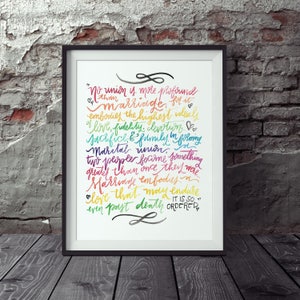 No union is more profound
than
marriage, for it
embodies the highest ideals
of love, fidelity, devotion,
sacrifice & family. In forming a
marital union,
two people become something
greater than once they were.
Marriage embodies a
love that may endure
even past death.
IT IS SO
ORDERED